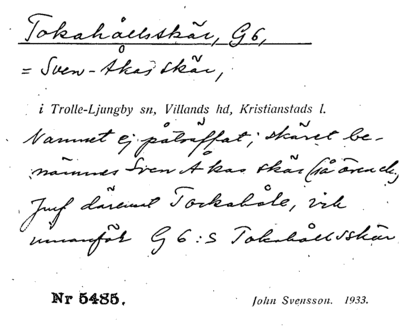 Tokahållsskär, G 6,
= Sven-Åkas skär,
i Trolle-Ljungby sn, Villands hd, Kristianstads l.
Namnet ej påträffat; skäret be-
nämnes Sven Åkas skär (så även ek.)
Jmf däremot Tockahåle, vik
innanför G 6:s Tokahållsskär
Nr 5485.
John Svensson. 1933.